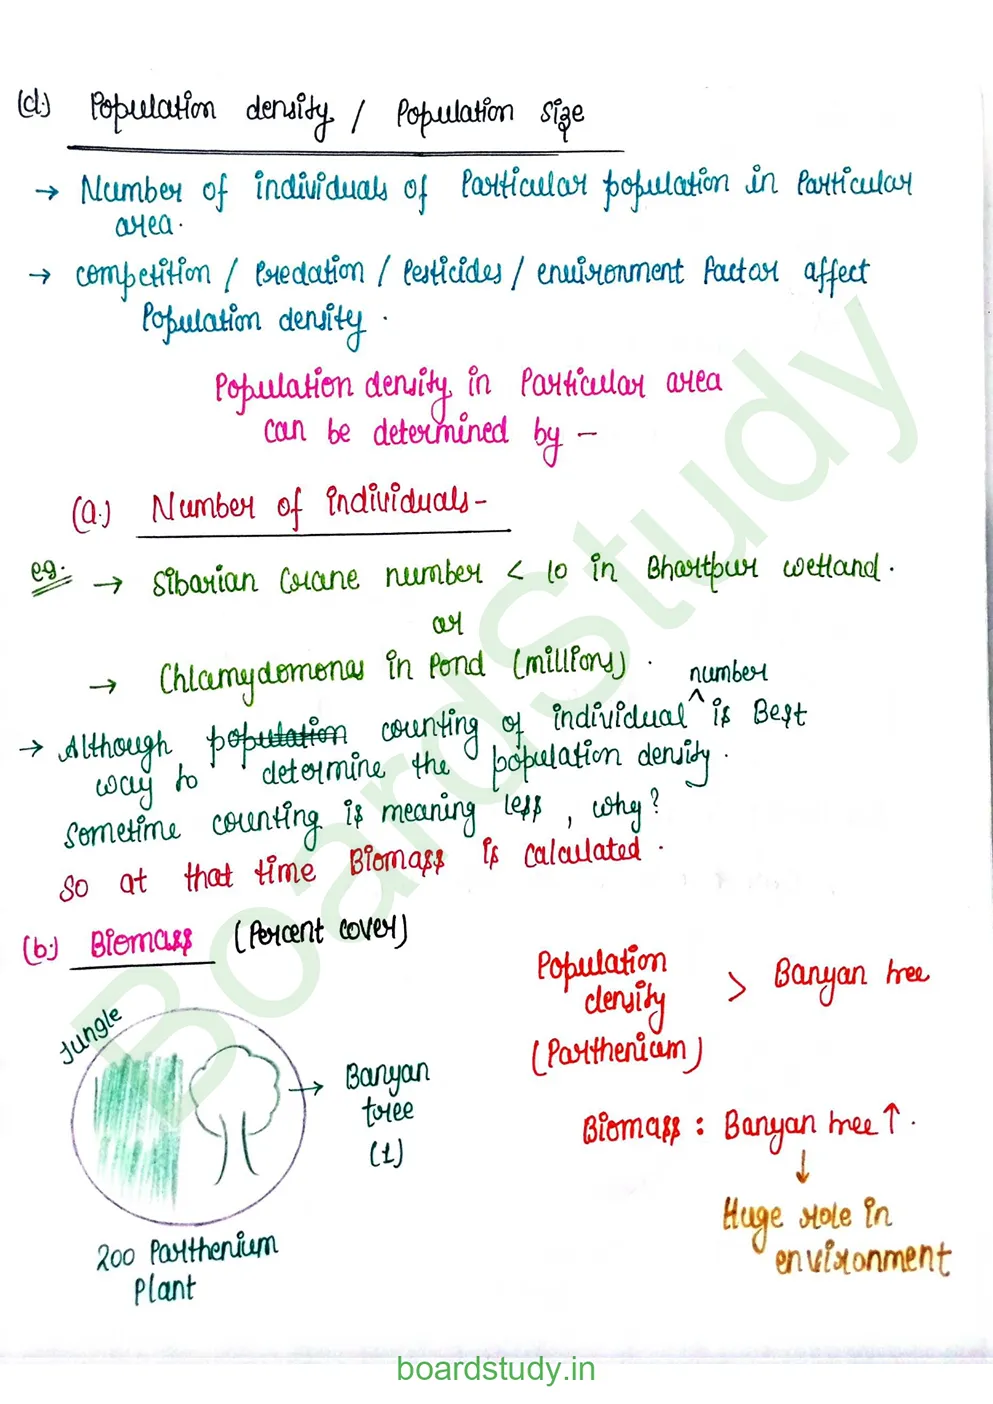 (d.) Population density / Population size
→ Number of individuals of Particular population in Particular
area.
→ competition / Predation / Pesticides / environment factor affect
Population density.
Population density in Particular area
can be determined by -
(a.) Number of individuals-
eg. → Sibarian Crane number < 10 in Bhartpur wetland.
or
→ Chlamydomonas in Pond (millions).
number
→ Although population counting of individual ^ is Best
way to determine the population density.
Sometime counting is meaning less, why?
So at that time Biomass is calculated.
(b.) Biomass (Percent cover)
Population
density > Banyan tree
(Parthenium)
Jungle
→ Banyan
tree
(1)
Biomass : Banyan tree ↑.
↓
Huge role in
environment
200 Parthenium
Plant
BoardStudy
boardstudy.in